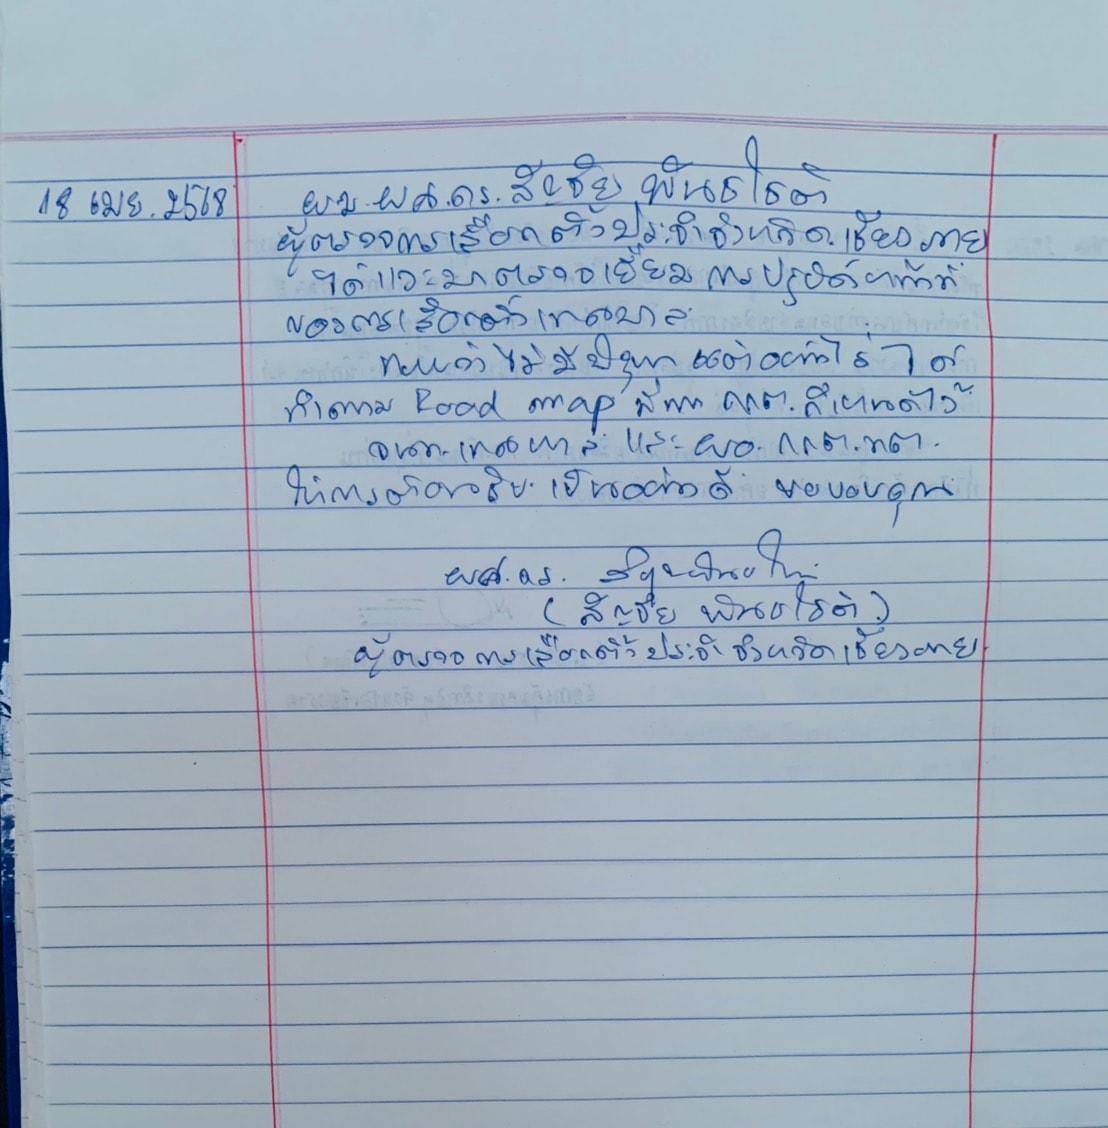 18 เมย. 2568
ผม ผศ.ดร. สัญชัย พันธโชติ
ผู้ตรวจการเลือกตั้งประจำจังหวัด เชียงราย
ได้แวะมาตรวจเยี่ยม การปฏิบัติหน้าที่
ของการเลือกตั้งเทศบาล
พบว่า ไม่มีปัญหา แต่อย่างไร ได้
ทำตาม Road map ที่ทาง กกต. กำหนดไว้
จนท. เทศบาล และ ผอ. กกต.ทต.
ให้การต้อนรับ เป็นอย่างดี ขอขอบคุณ
ผศ.ดร.
(สัญชัย พันธโชติ)
ผู้ตรวจการเลือกตั้งประจำจังหวัดเชียงราย